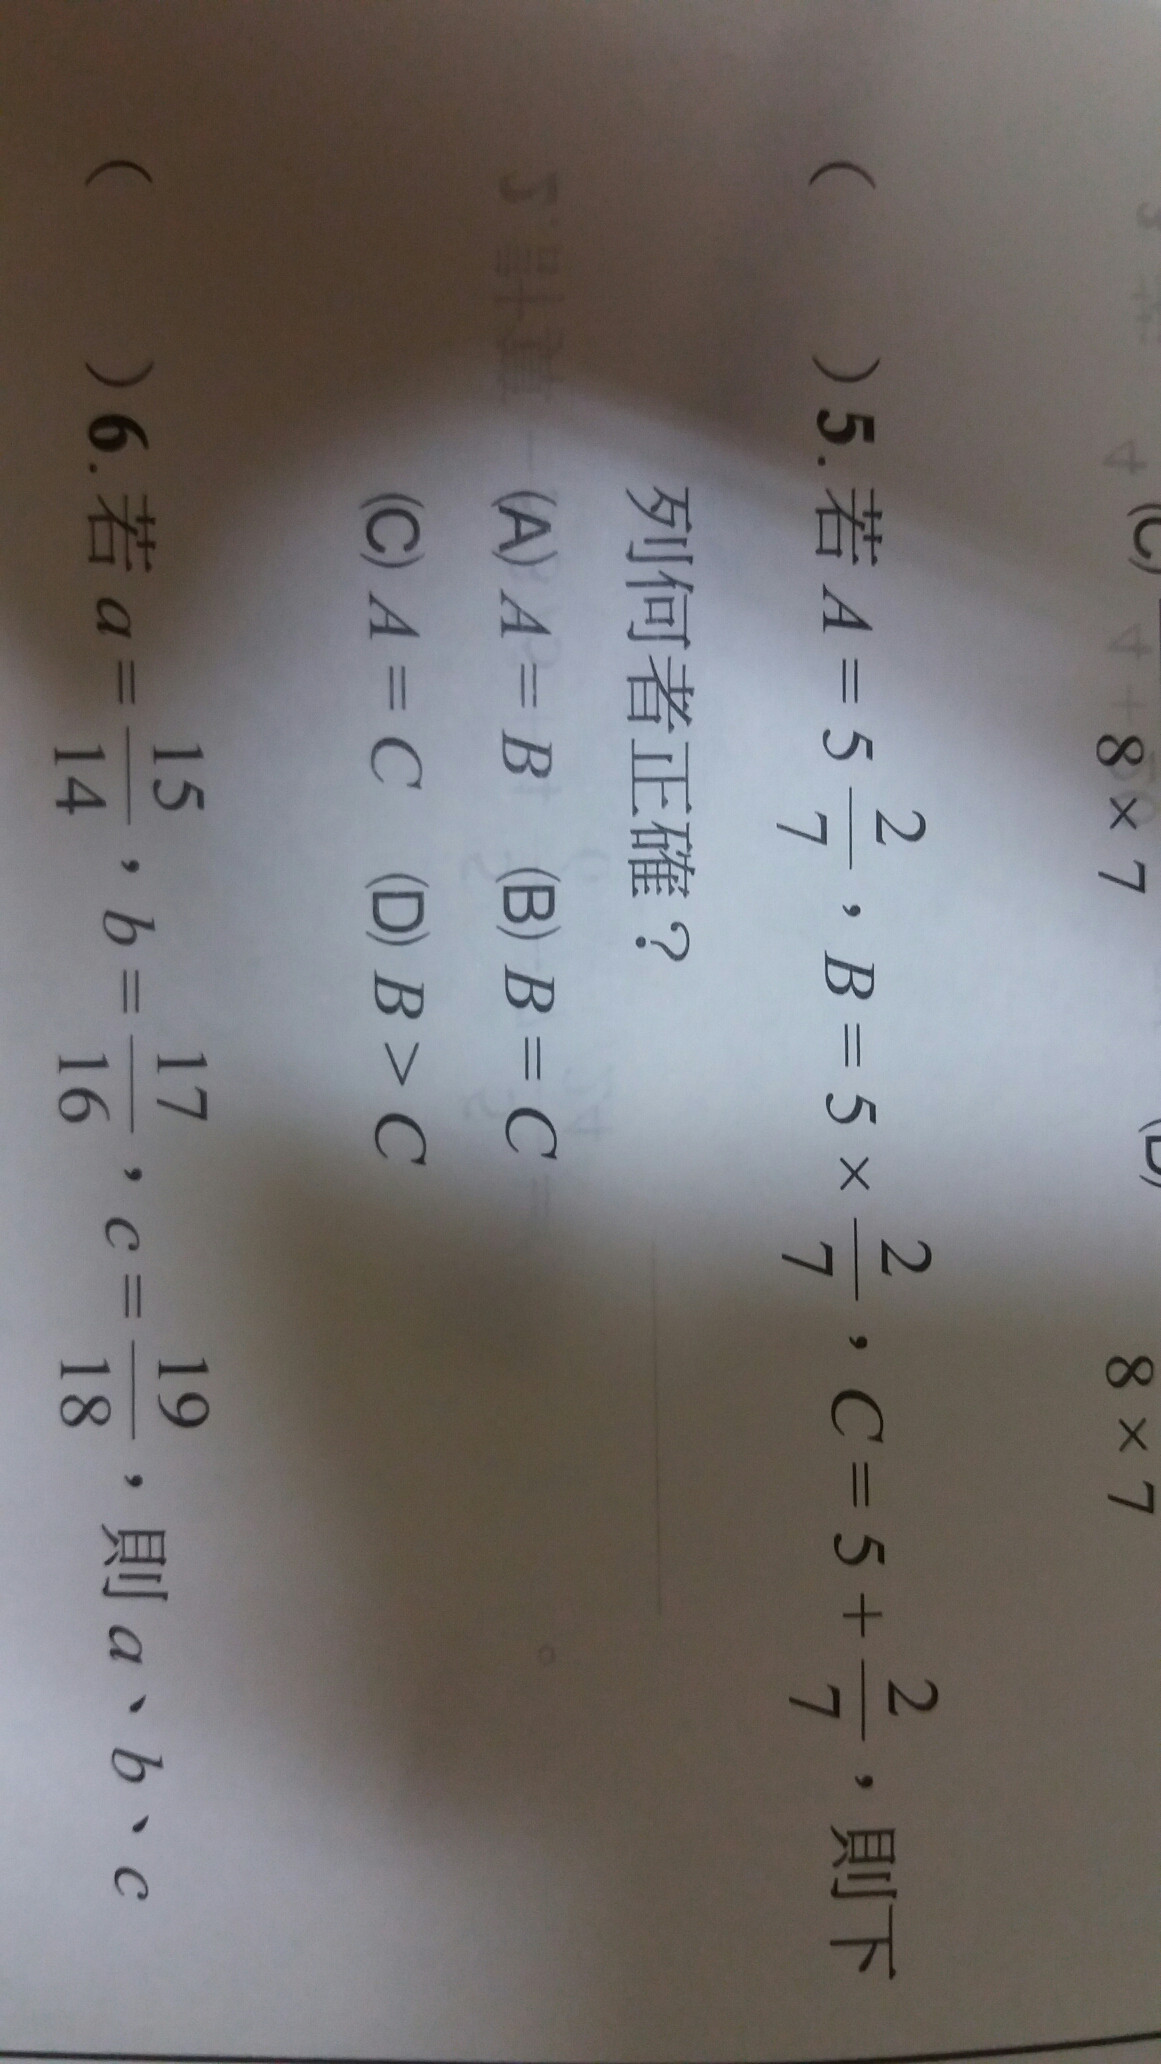 (C) 8 × 7 (D) 8 × 7
( ) 5. 若 A = 5 2/7 , B = 5 × 2/7 , C = 5 + 2/7 , 則下
列何者正確？
(A) A = B (B) B = C
(C) A = C (D) B > C
( ) 6. 若 a = 15/14 , b = 17/16 , c = 19/18 , 則 a、b、c